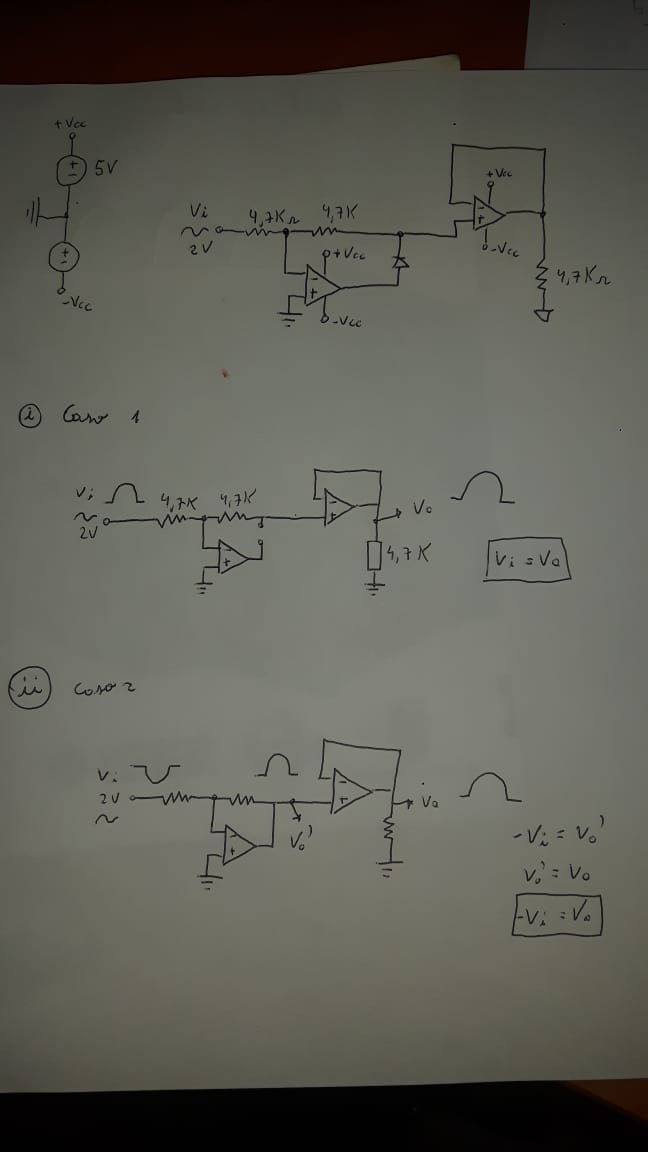 +Vcc
5V
+Vcc
Vi 4,7KΩ 4,7K
2V +Vcc -Vcc 4,7KΩ
-Vcc
-Vcc
i Caso 1
Vi 4,7K 4,7K Vo
2V
4,7K Vi = Vo
ii caso 2
Vi
2V Vo
Vo' -Vi = Vo'
Vo' = Vo
-Vi = Vo